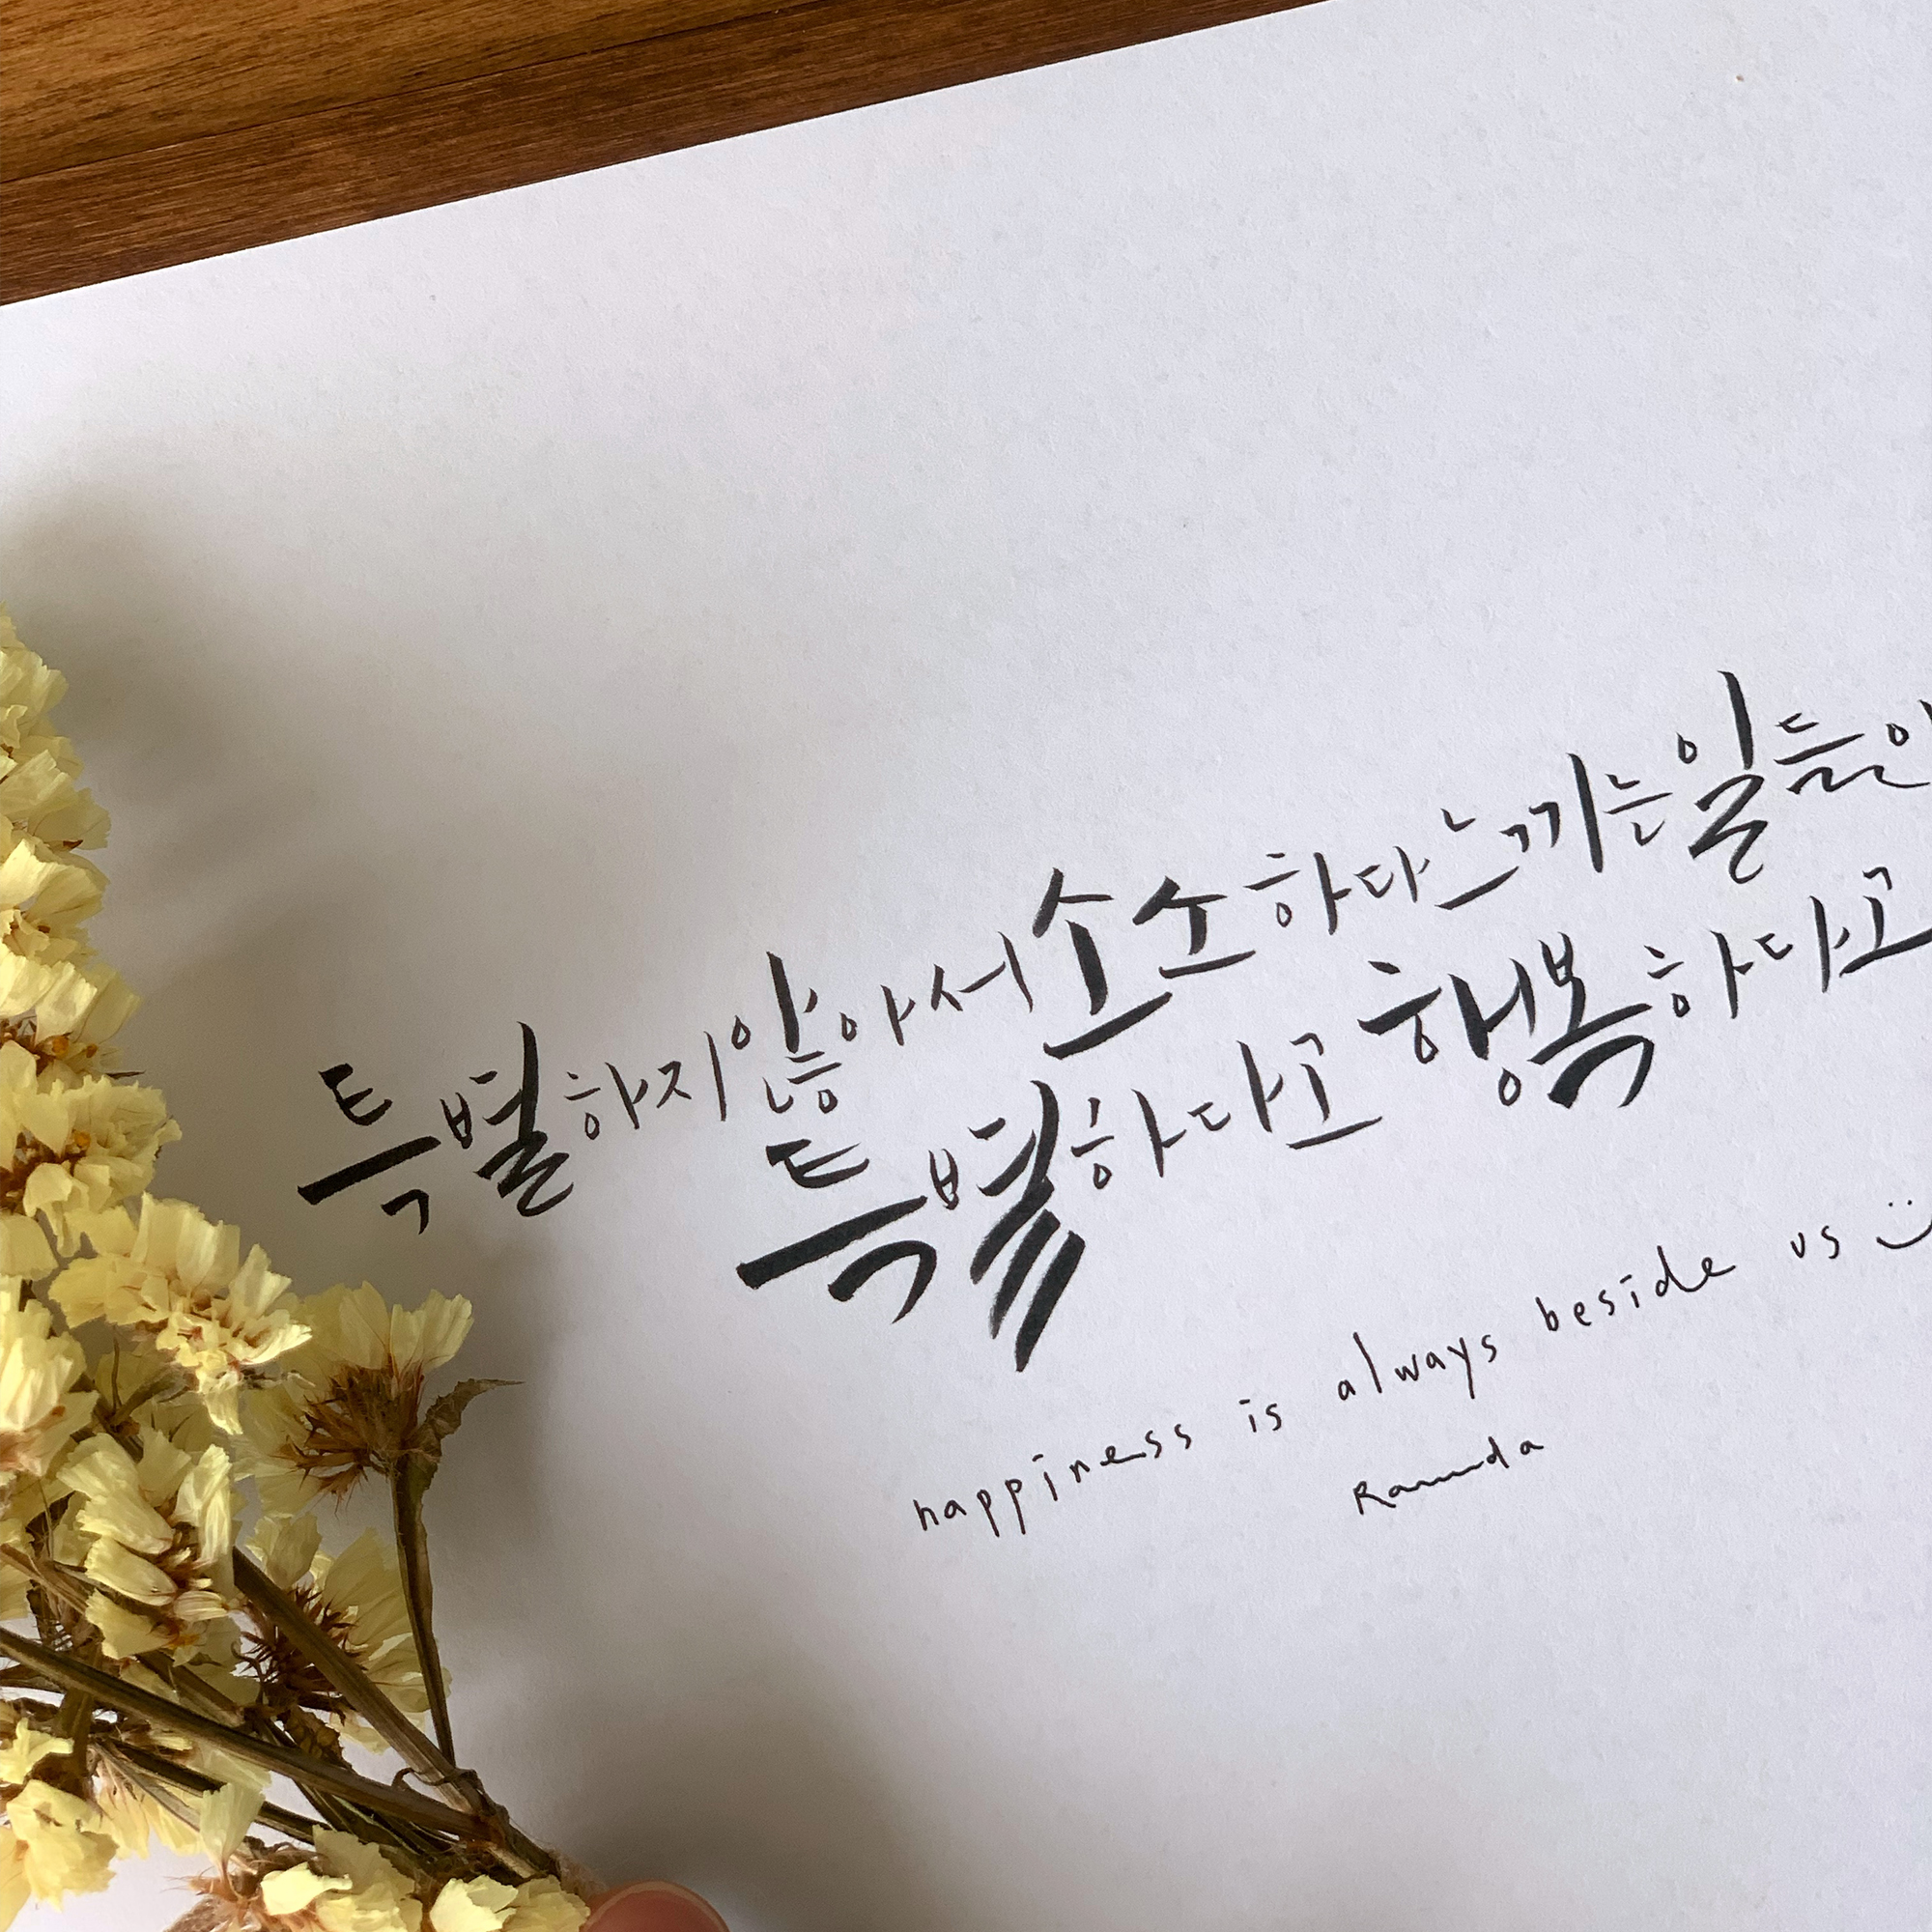 특별하지않아서소소하다느끼는일들이
특별하다고행복하다고
happiness is always beside us :)